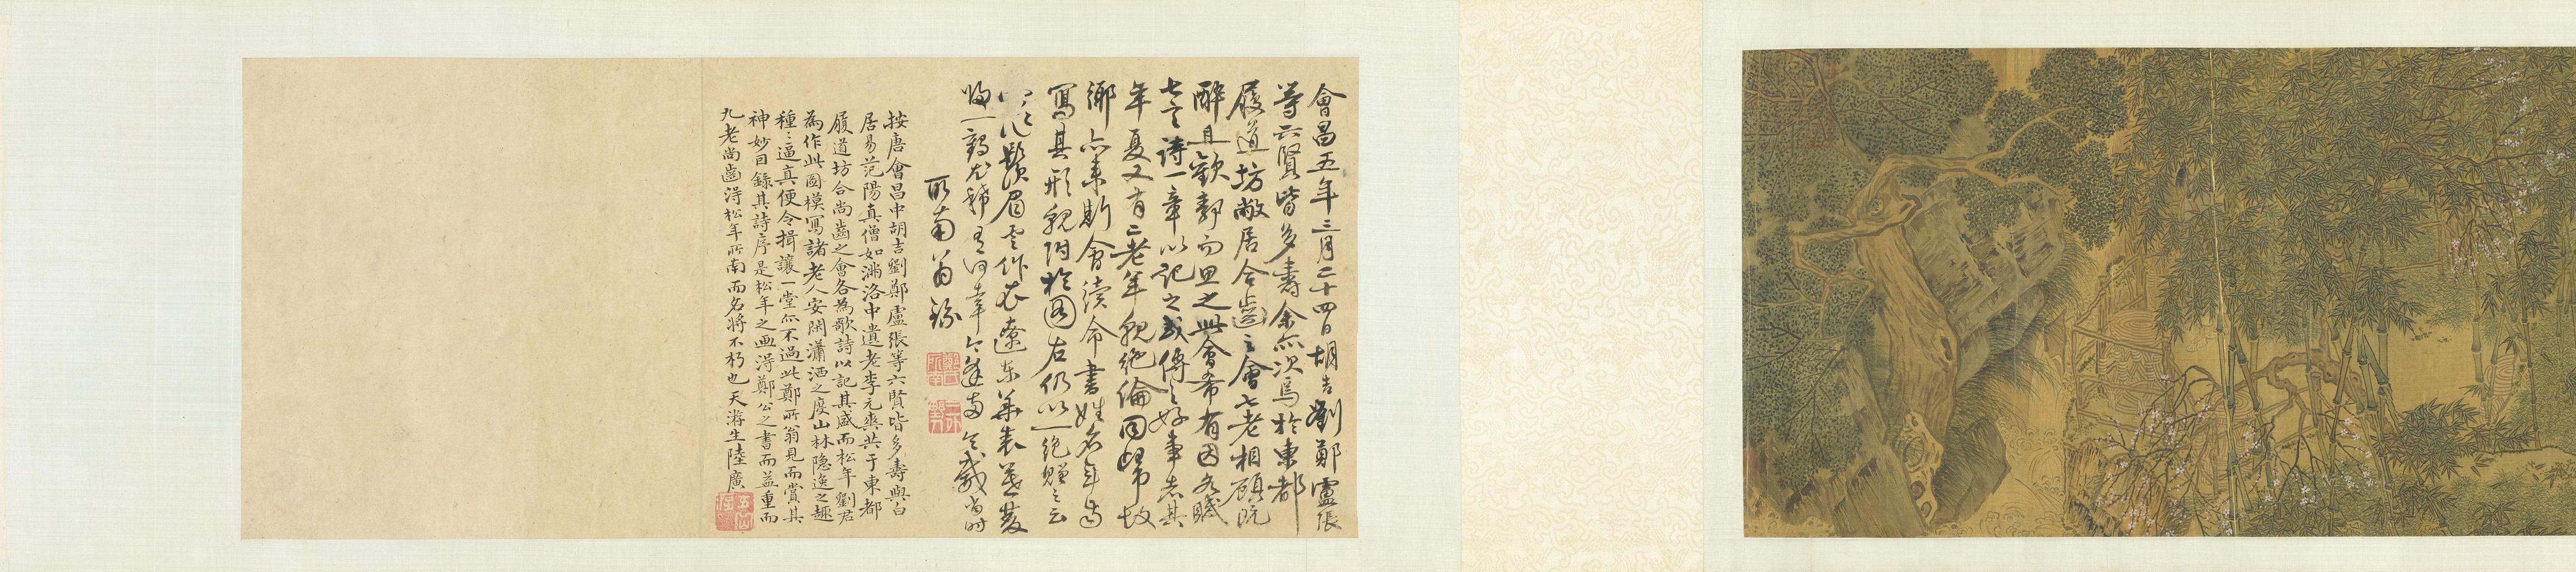 會昌五年三月二十四日胡吉劉鄭盧張
等六賢皆多壽余亦次焉於東都
履道坊敝居合齒之會七老相顧既
醉且歡靜而思之此會希有因各賦
七言詩一章以記之或傳之好事者其
年夏又有二老年貌絕倫同歸故
鄉亦來斯會續命書姓名年齒
寫其形貌附於圖右仍以一絕贈之云
雪作鬚眉雲作衣遼東華表暮雙
歸一鶴尤稀有何幸今逢兩令威當時
所南翁錄
按唐會昌中胡吉劉鄭盧張等六賢皆多壽與白
居易范陽真僧如滿洛中遺老李元爽共于東都
履道坊合尚齒之會各為歌詩以記其盛而松年劉君
為作此圖模寫諸老人安閑瀟洒之度山林隱逸之趣
種種逼真便令揖讓一堂亦不過此鄭所翁見而賞其
神妙因錄其詩序是松年之画得鄭公之書而益重而
九老尚齒得松年所南而名將不朽也天游生陸廣